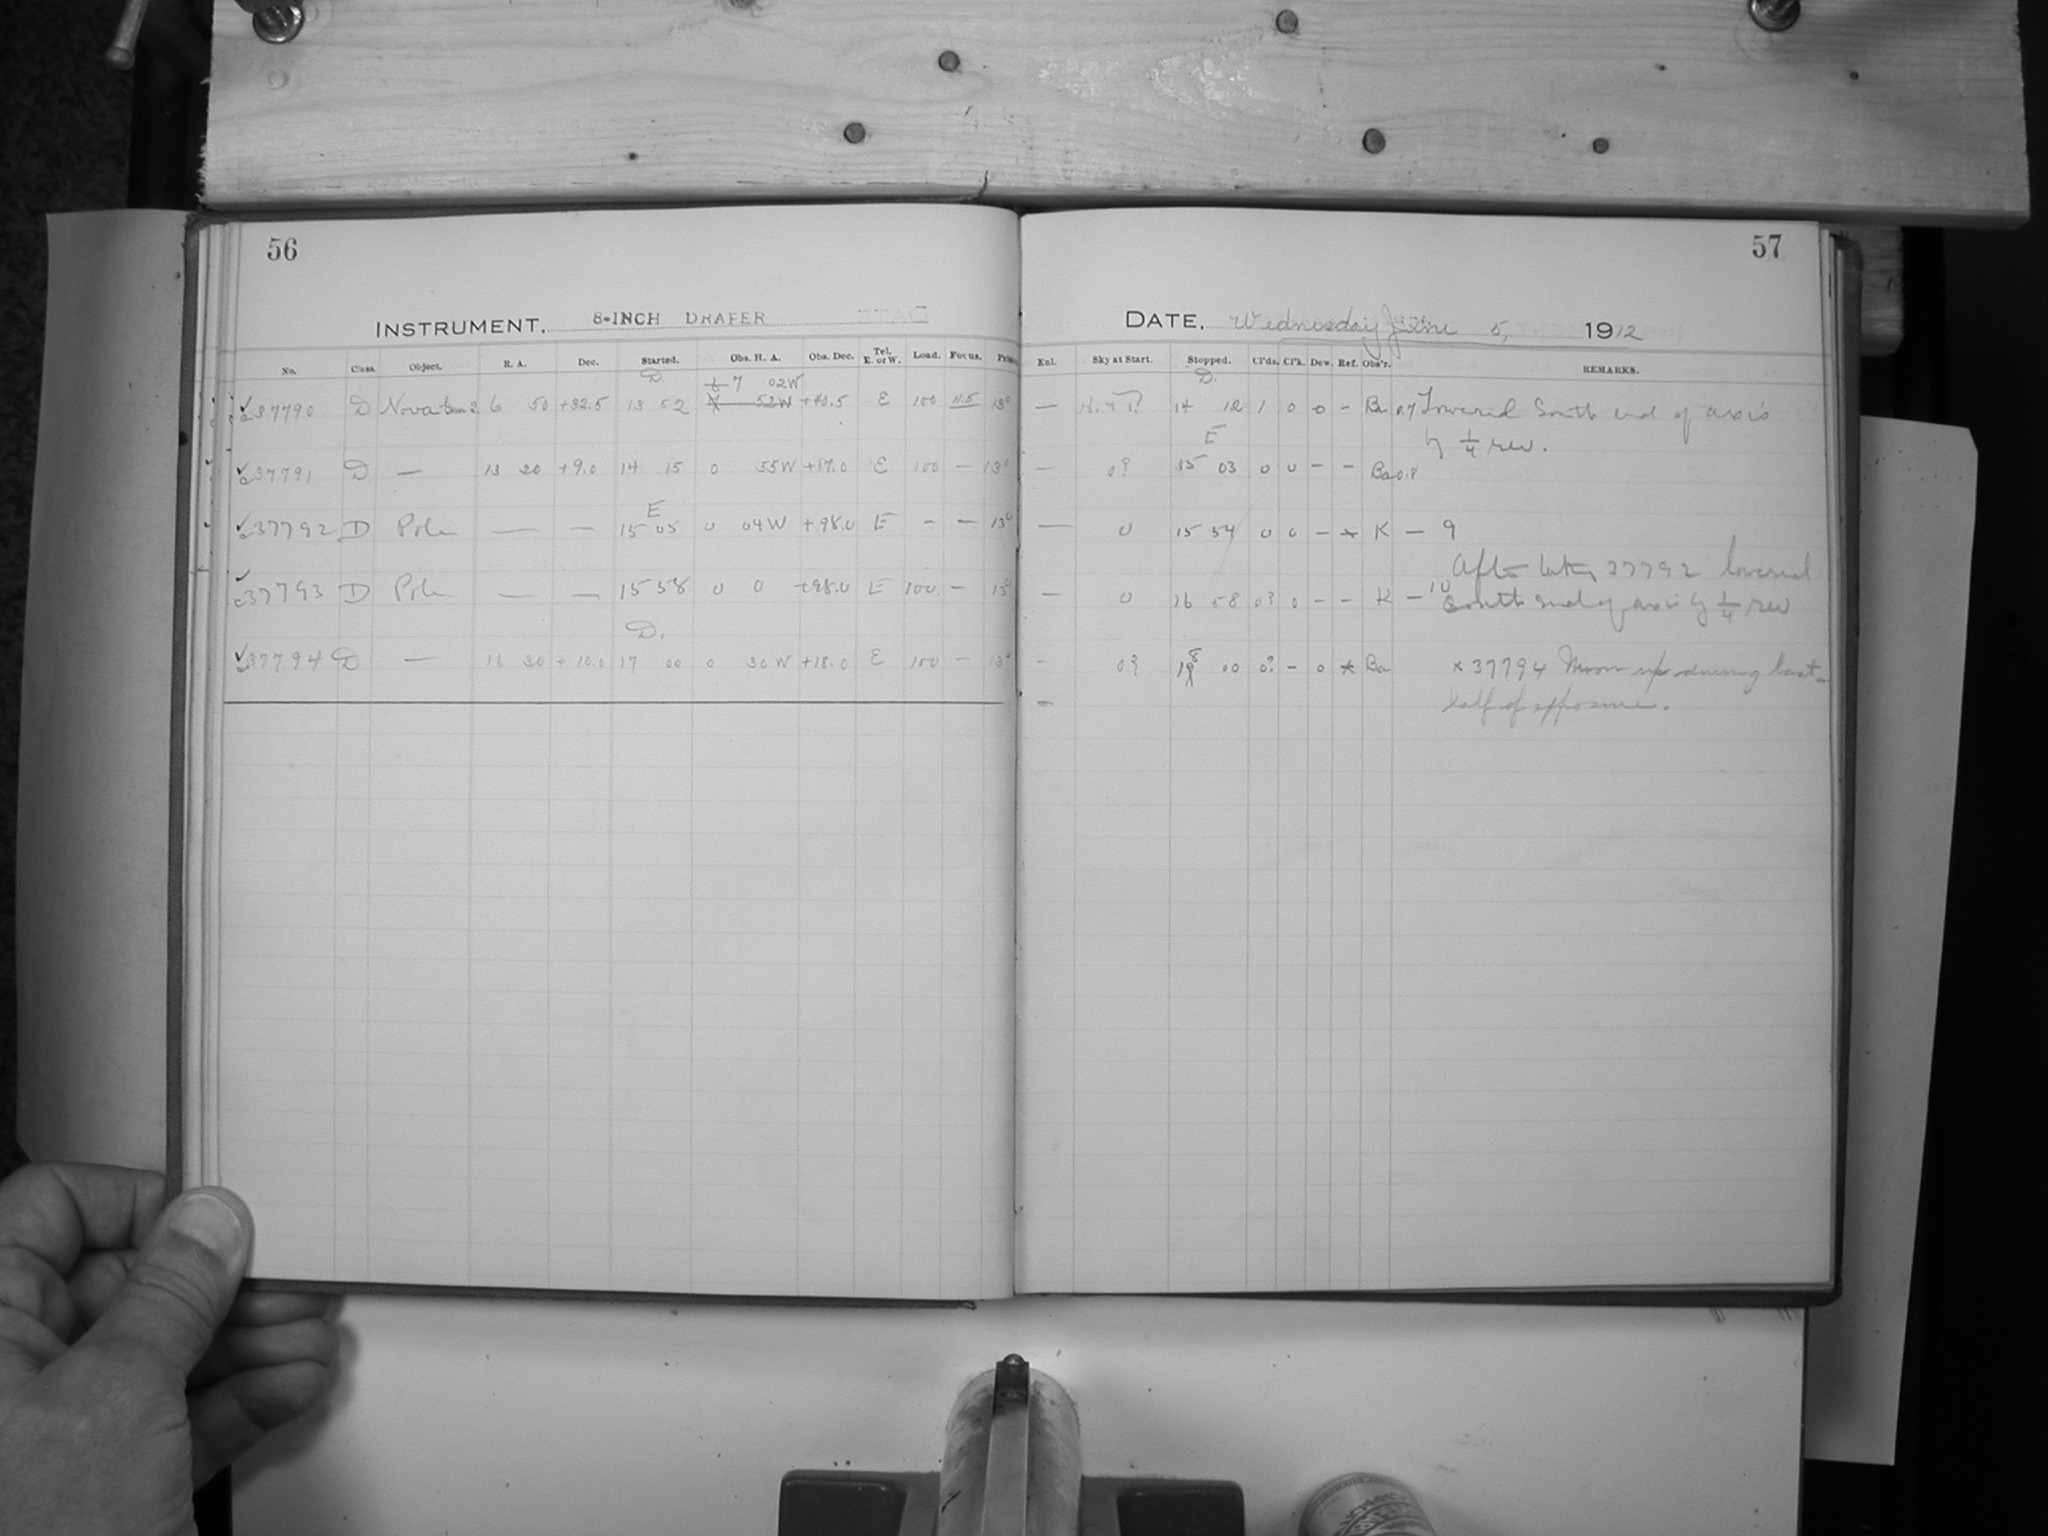 56
INSTRUMENT, 8-INCH DRAPER
No. Class. Object. R. A. Dec. Started. Obs. H. A. Obs. Dec. Tel. E. or W. Load. Focus.
D. 7 02W
37790 D Nova Gem 2 6 50 +32.5 13 52 52W +40.5 E 100 11.5 13°
37791 D — 13 20 +9.0 14 15 0 55W +17.0 E 100 — 13°
E
37792 D Pole — — 15 05 0 04W +98.0 E - — 13°
37793 D Pole — — 15 58 0 0 +98.0 E 100 — 13°
D.
37794 D — 16 30 +10.0 17 00 0 30W +18.0 E 100 — 13°
57
DATE, Wednesday June 5, 1912
Enl. Sky at Start. Stopped. Cl'ds. Cl'k. Dew. Ref. Obs'r. REMARKS.
D.
— H. & T? 14 12 1 0 0 - Ba 0.7 Lowered South end of axis
by 1/4 rev.
E
— 0? 15 03 0 0 - - Ba 0.8
— 0 15 54 0 0 - K — 9
After taking 37792 lowered
— 0 16 58 0? 0 - - K — 10 South end of axis by 1/4 rev
- 0? 18 00 0? - 0 * Ba × 37794 Moon up during last
half of exposure.